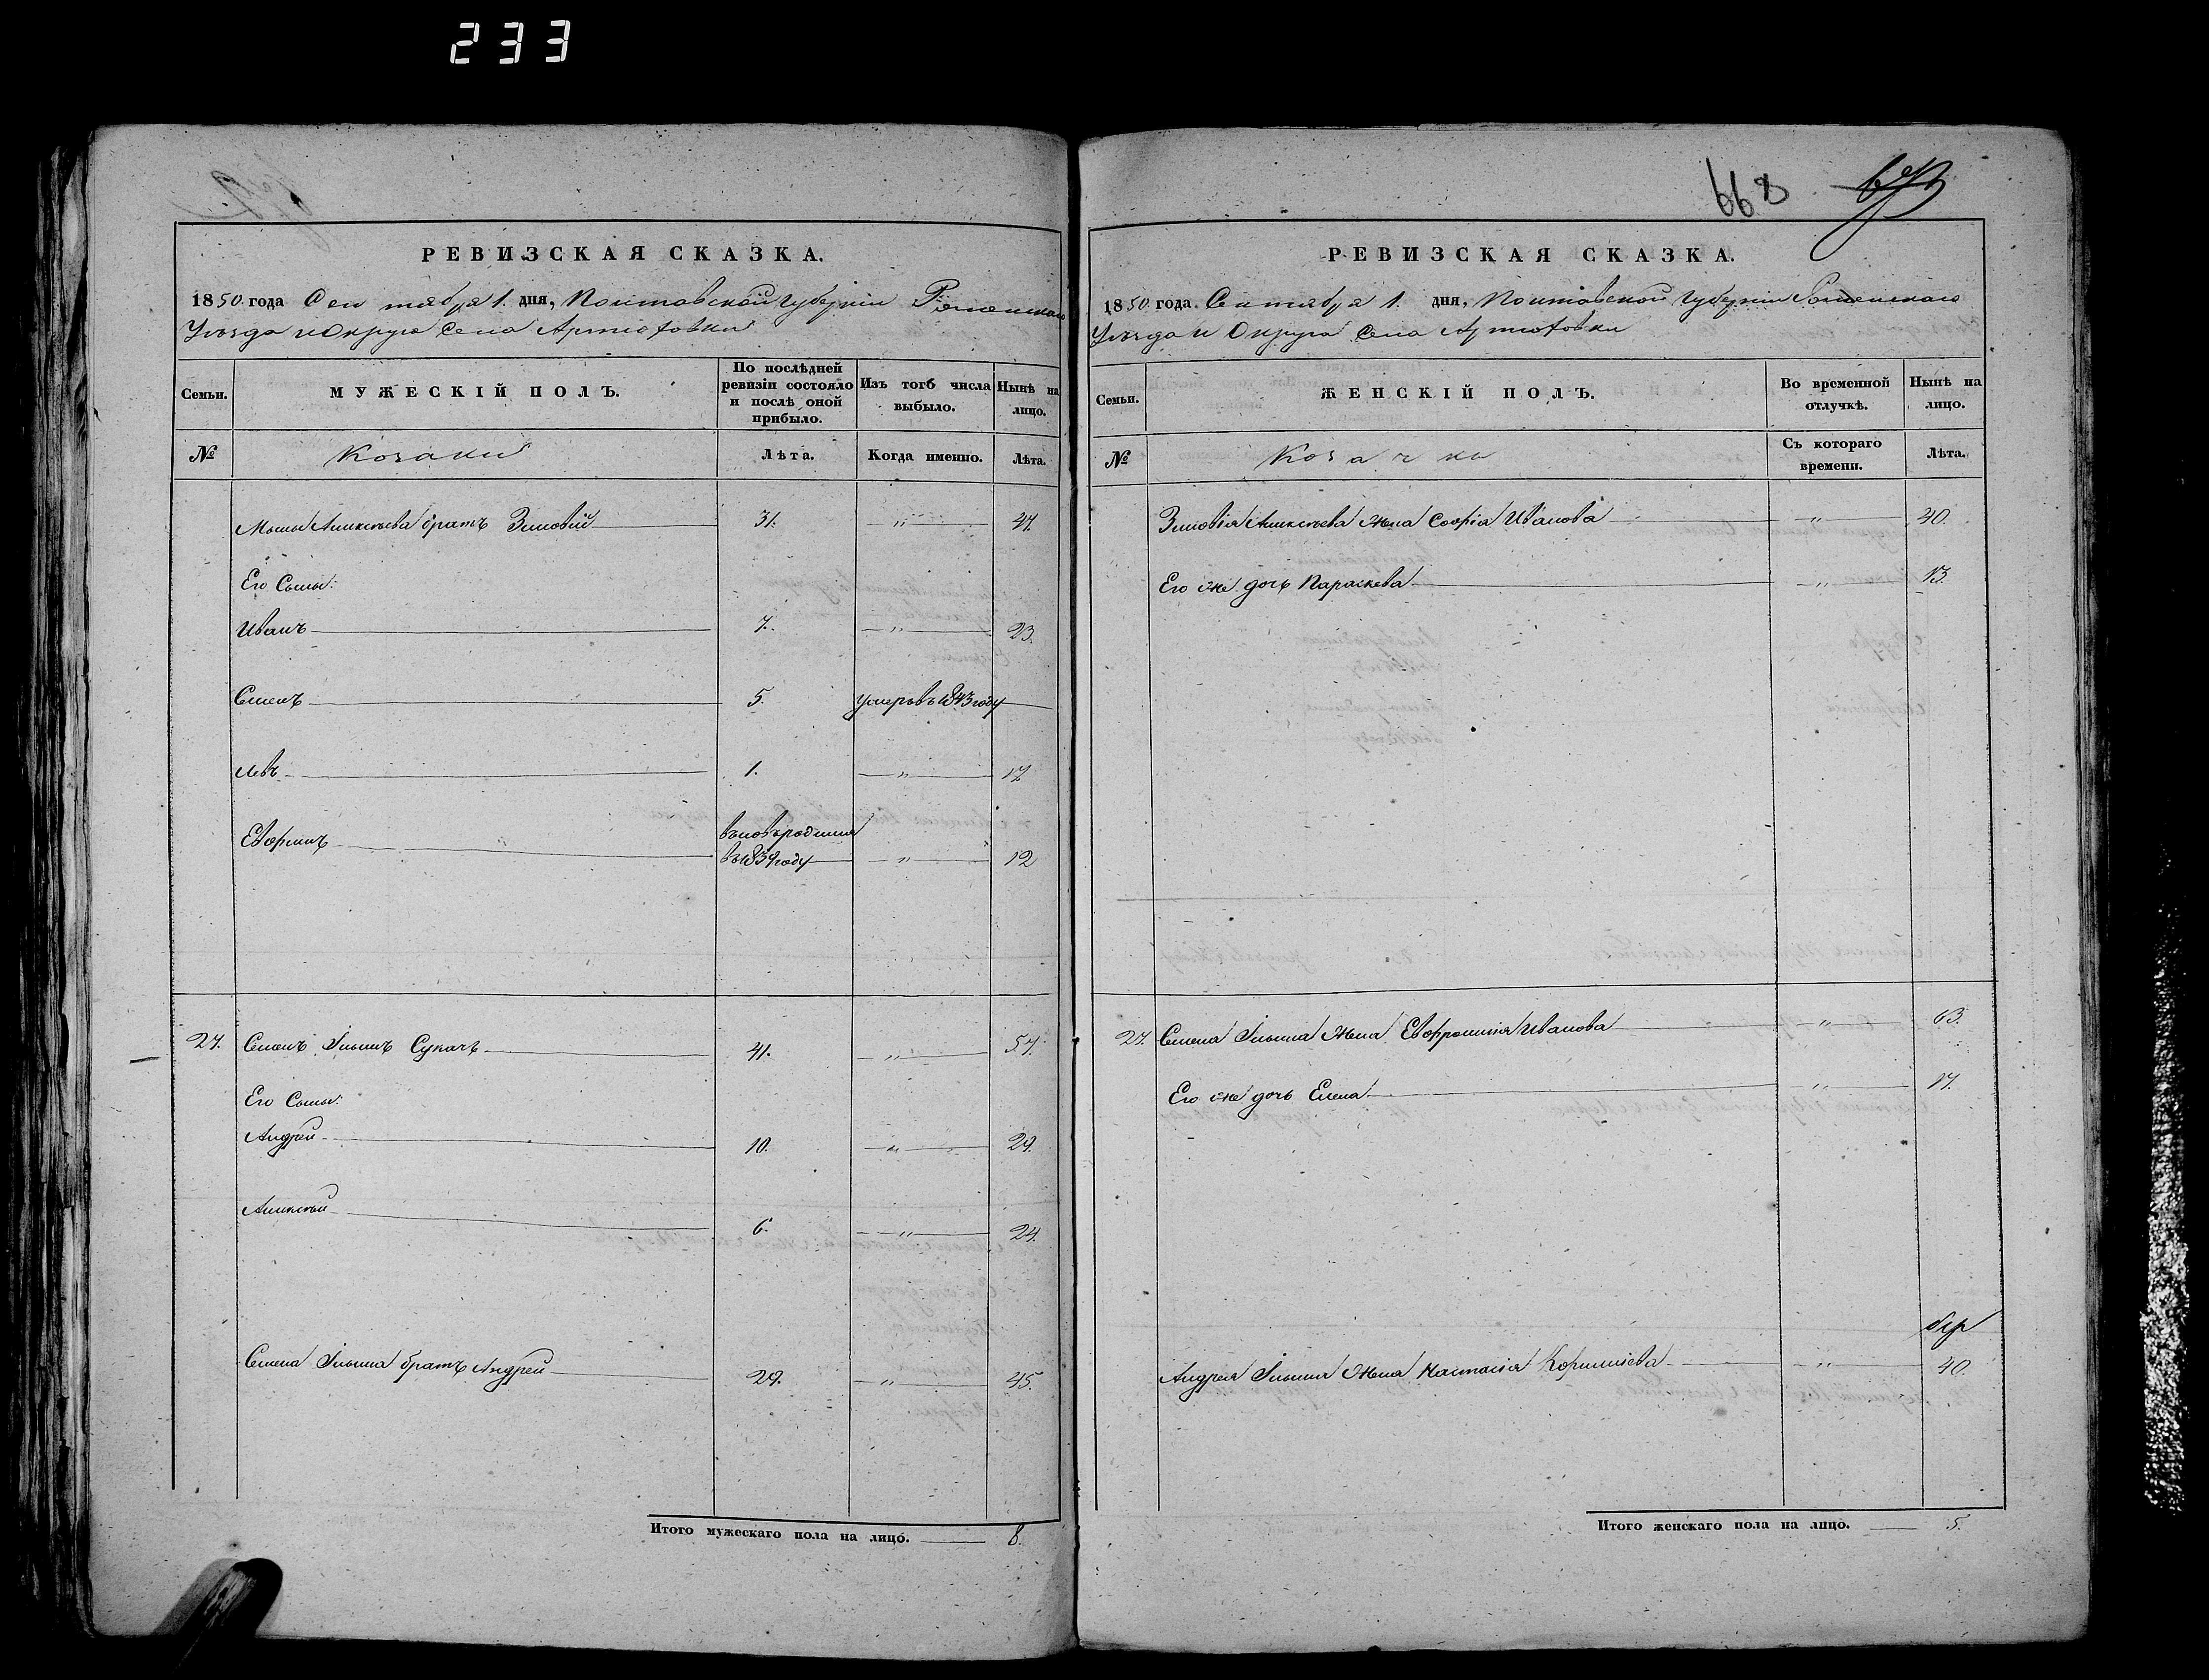 233
668
РЕВИЗСКАЯ СКАЗКА.
1850. года Сентября 1. дня, Полтавской Губерніи Роменскаго
Уѣзда и Округа Села Артюховки
Семьи.
МУЖЕСКІЙ ПОЛЪ.
По послѣдней ревизіи состояло и послѣ оной прибыло.
Изъ того числа выбыло.
Нынѣ на лицо.
№
Козаки
Лѣта.
Когда именно.
Лѣта.
Алексѣева братъ Зиновій 31. " 47.
Его Сыны:
Иванъ 7. " 23.
Семенъ 5. умеръ въ 1843 году
Левъ 1. " 17
Евфимъ вновьродился
въ 1839 году " 12
27. Семенъ Ильинъ Сукачъ 41. " 57.
Его Сыны:
Андрей 10. "
Алексѣй 6. "
Семена Ильина братъ Андрей 29. " 45.
Итого мужескаго пола на лицо. 8.
РЕВИЗСКАЯ СКАЗКА.
1850. года. Сентября 1. дня, Полтавской Губерніи Роменскаго
Уѣзда и Округа Села Артюховки
Семьи.
ЖЕНСКІЙ ПОЛЪ.
Во временной отлучкѣ.
Нынѣ на лицо.
№
Козачки
Съ котораго времени.
Лѣта.
Зиновія Алексѣева жена Софія Иванова " 40.
Его же дочь Параскева " 13.
27. Семена Ильина жена Евфросинія Иванова " 63.
Его же дочь Елена " 17.
Андрея Ильина жена Настасія Корнилиева " 40.
Итого женскаго пола на лицо. 5.